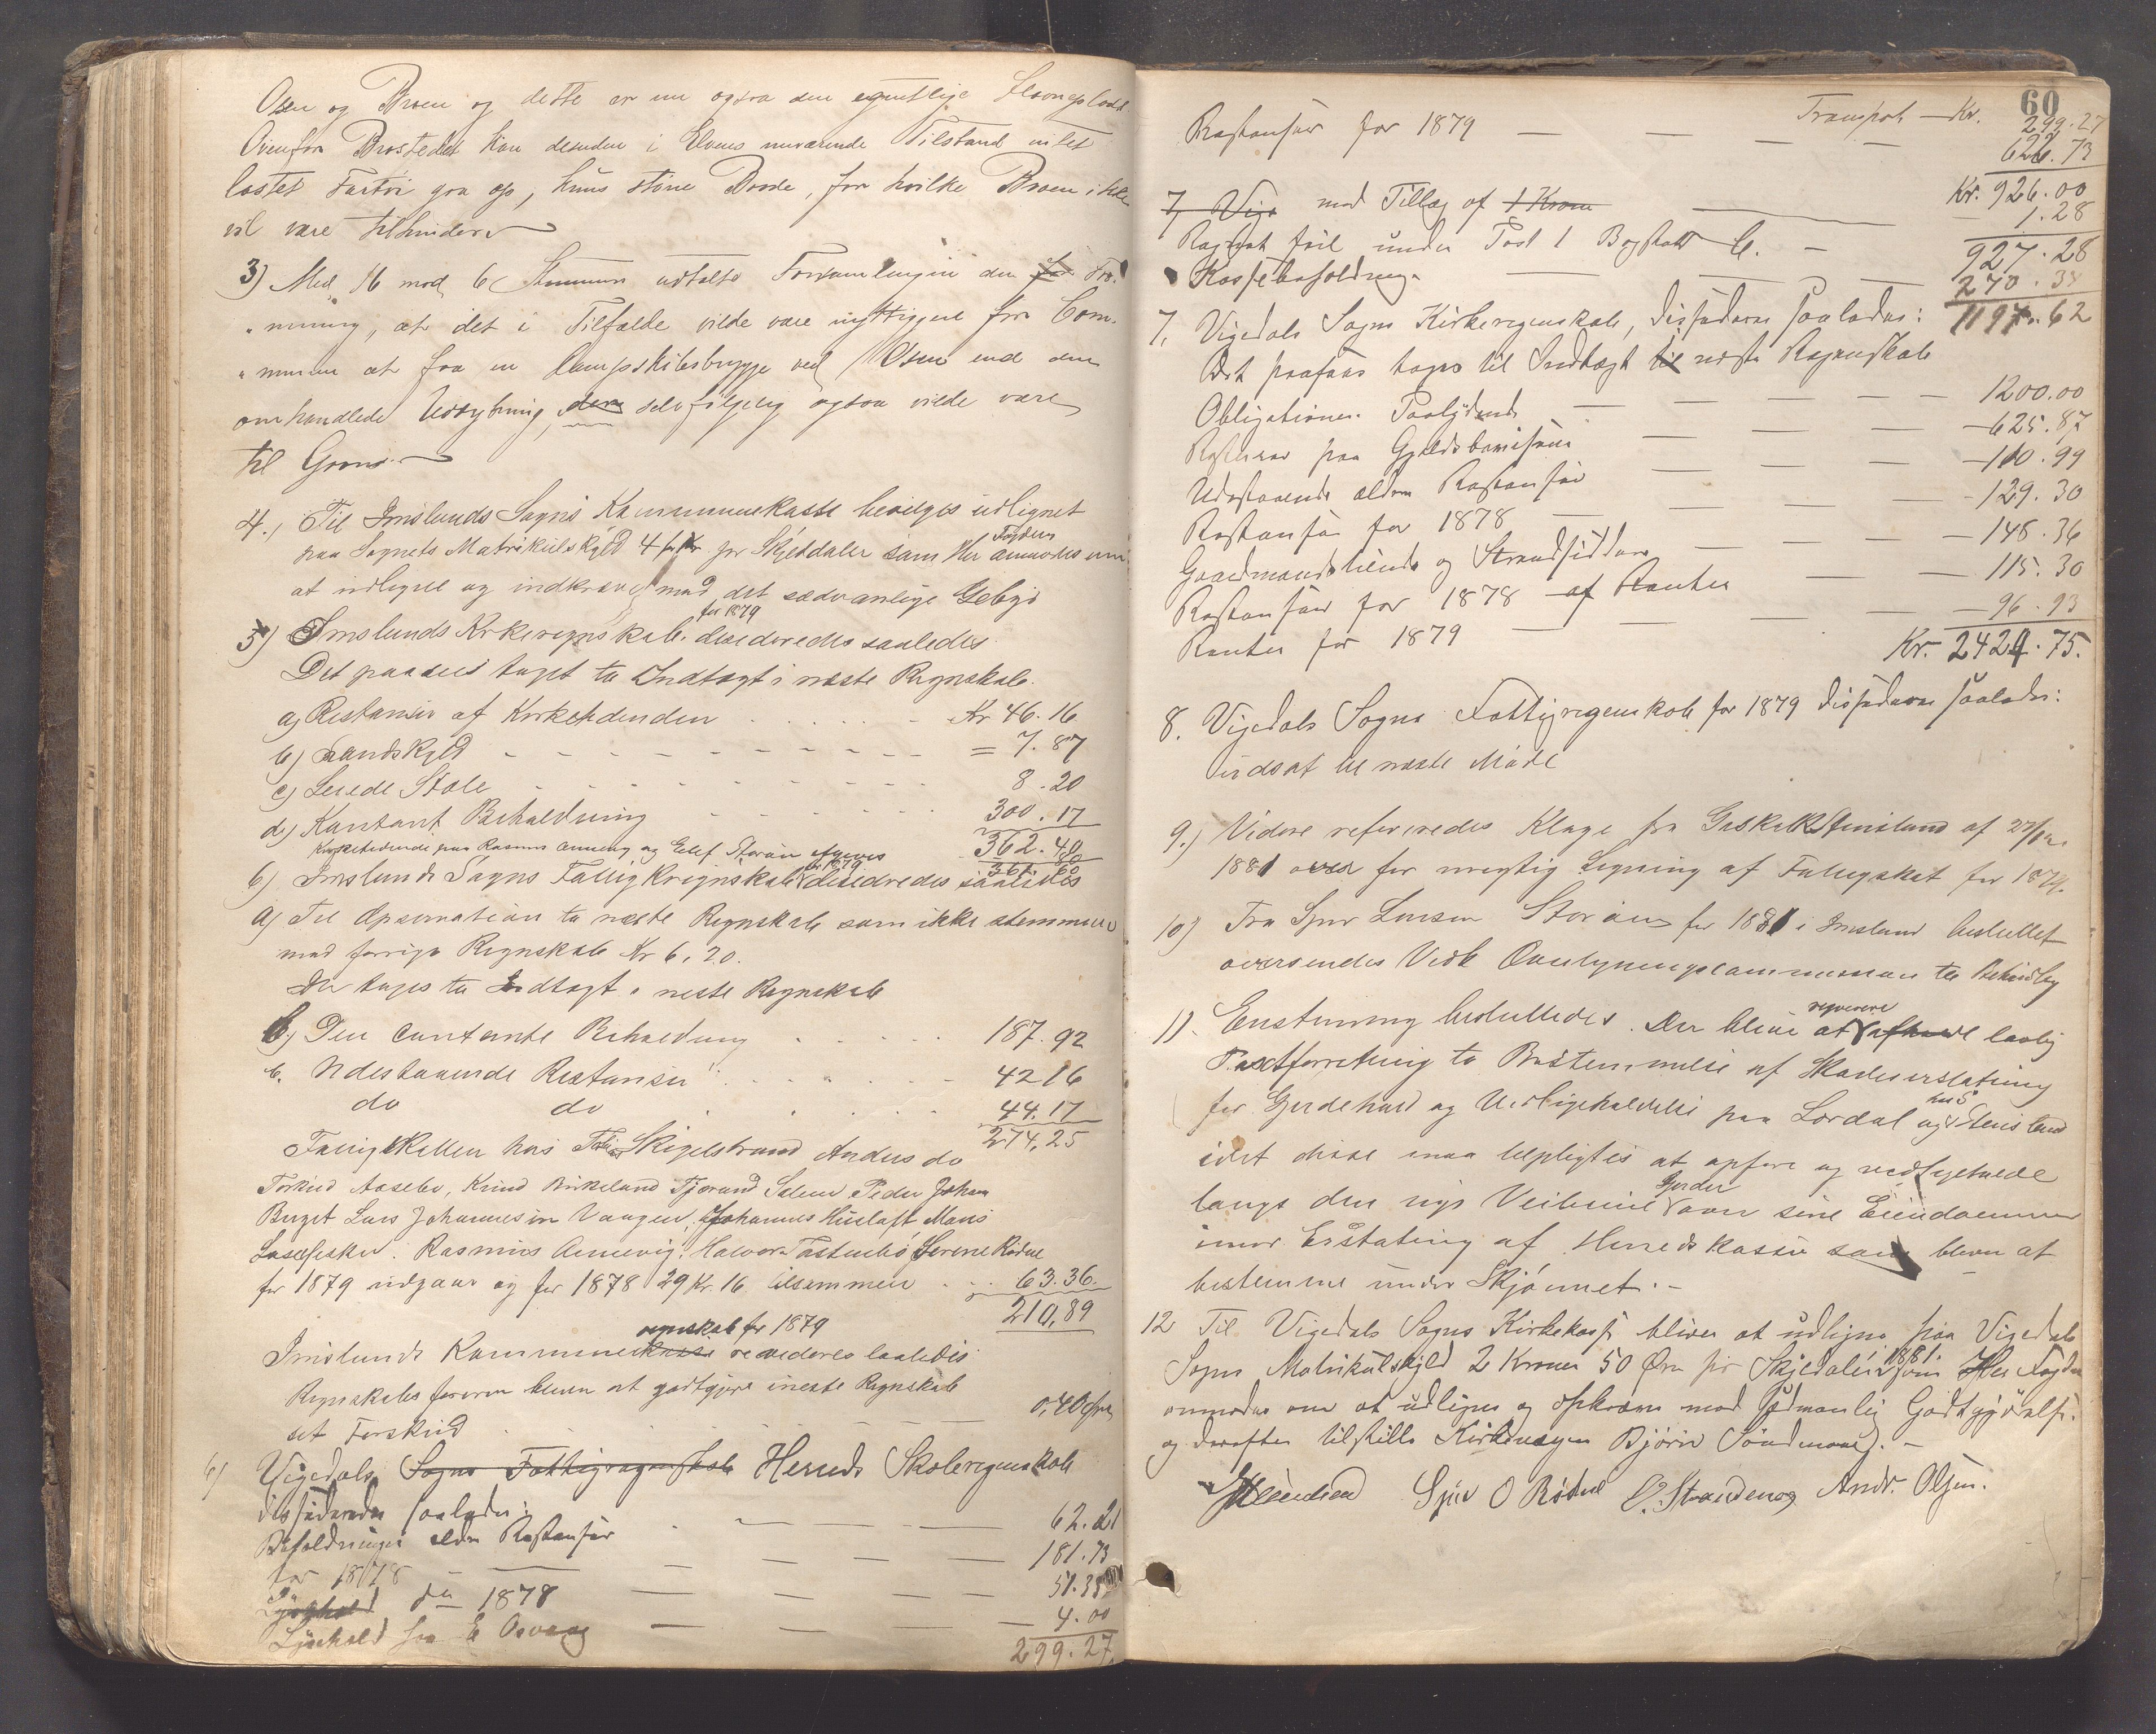 Osen og Broen og dette er nu ogsaa den egentlige
Ovenfor Brostedet kan desuden i Elvens nuværende Tilstand intet
lastet Fartöi gaa op, kuns större Baade, for hvilke Broen ikke
vil være tilhinder
3) Med 16 mod 6 Stemmer udtalte Forsamlingen den
mening, at det i Tilfælde vilde være nyttigere for Com-
munen at faa en Dampskibsbrygge ved Osen end den
omhandlede Udstykning, den selvfölgelig ogsaa vilde være
til Gavn.
4., Til Imslands Sogns Kommunekasse bevilges udlignet
paa Sognets Matrikulskyld 4 Kr pr Skjeldaler som Her Fogden anmodes om
at udlignes og indkræves mod det sædvanlige Gebyr
5) Imslands Kirkeregnskab for 1879 desideredes saaledes
Det paasees taget til Indtægt i næste Regnskab.
a) Restanser af Kirketienden - Kr 46.16
b) Landskyld - - - = 7.87
c) Leiede Stole - - - 8.20
d) Kontant Beholdning - - - 300.17
362.40
Kirketiende paa Rasmus Amevig og Elef
6) Imslands Sogns Fattigkregnskab for 1879 desideredes saaledes
a) Til Opservation til næste Regnskab som ikke stemmer
med forrige Regnskab Kr 6.20.
Der tages til Indtægt i neste Regnskab
b) Den contante Beholdning . . . 187.92
c. Udestaaende Restanser . . . 42 16
do do . . . 44.17
274.25
Fattigskatten hos Skigelstrand Anders do
Torkild Aasebø, Knud Birkeland Tjerand Salem Peder Johan
Lars Johannesen Vaagen, Johannes Mons
Rasmus Amevig. Halvor Serine Rödne
for 1879 udgaar og for 1878 29 Kr. 16 tilsammen . . 63.36.
210,89
Imslands Kommunekasse regnskab for 1879 revideres saaledes
Regnskabsföreren bliver at godtgjøre i neste Regnskab
set Forskud 0,40 Øre
6) Vigedals Sogns Fattigregnskab Herreds Skoleregnskab
dissideredes saaledes:
Beholdninger eldre Restanser - - - 62.21
for 1878 - - - 181.73
Lyshold do 1878 - - - 51.33
Lyshold fra E Osvaag - - - 4.00
299.27
60
Transport - Kr. 299.27
Restanser for 1879 - - - 626.73
Kr. 926.00
7, Vige med Tillæg af 1 Krone - 1.28
Regnet feil under Post 1 Bogstav C. - 927.28
Kassebeholdning - - - 270.34
1197.62
7, Vigedals Sogns Kirkeregnskab, dissideres saaledes:
Det paasees tages til Indtægt til næste Regnskab
Obligationer Paalydende - - - 1200.00
Resterer paa Gjeldsbeviserne - - - 625.87
Udestaaende eldere Restanser - - - 110.99
Restanser for 1878 - - - 129.30
Gaardmandstiende og Strandsiddere - - - 148.36
Restanser for 1878 af Renter - - - 115.30
Renter for 1879 - - - 96.93
Kr. 2424.75.
8. Vigedals Sogns Fattigregnskab for 1879 dissideres saaledes:
udsat til næste Møde
9.) Videre refereredes Klage fra Gaskel Stensland af
1881 over for urigtig Ligning af Fattigskat for 1879.
10) Fra Sjur Larsen Storöen for 1881 i Imsland besluttet
oversendes Vedk Overligningscommissionen til Behandling
11. Enstemmig besluttedes. Der bliver at reqverere afholde lovlig
Taxtforretning til Bestemmelse af Skadeserstatning
for Gjerdehold og Vedligeholdelse paa Lordal og hus 5 Stensland
idet disse maa tilpligtes at opføre og vedligeholde
langs den nye Veilinie Gjerder over sine Eiendomme
imod Erstatning af Herredskassen som bliver at
bestemme under Skjønnet. -
12 Til Vigedals Sogns Kirkekasse bliver at udligne paa Vigedals
Sogns Matrikulskyld 2 Kroner 50 Øre pr Skjeldaler 1881 som Her Fogden
anmodes om at udligne og opkræve mod sædvanlig Godtgjørelse
og derefter tilstille Kirkevergen Bjørn Söndenaa. -
Sjur O Rödne O. Strandenæs Andr. Olsen.